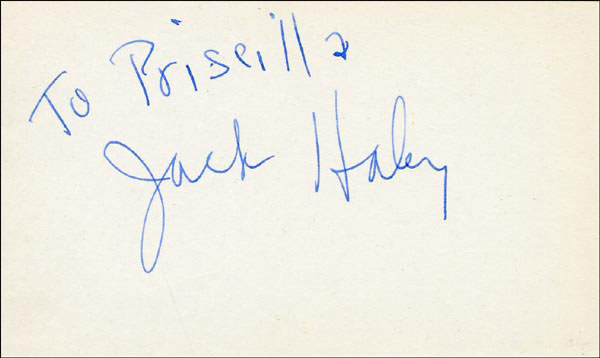 To Priscilla
Jack Haley